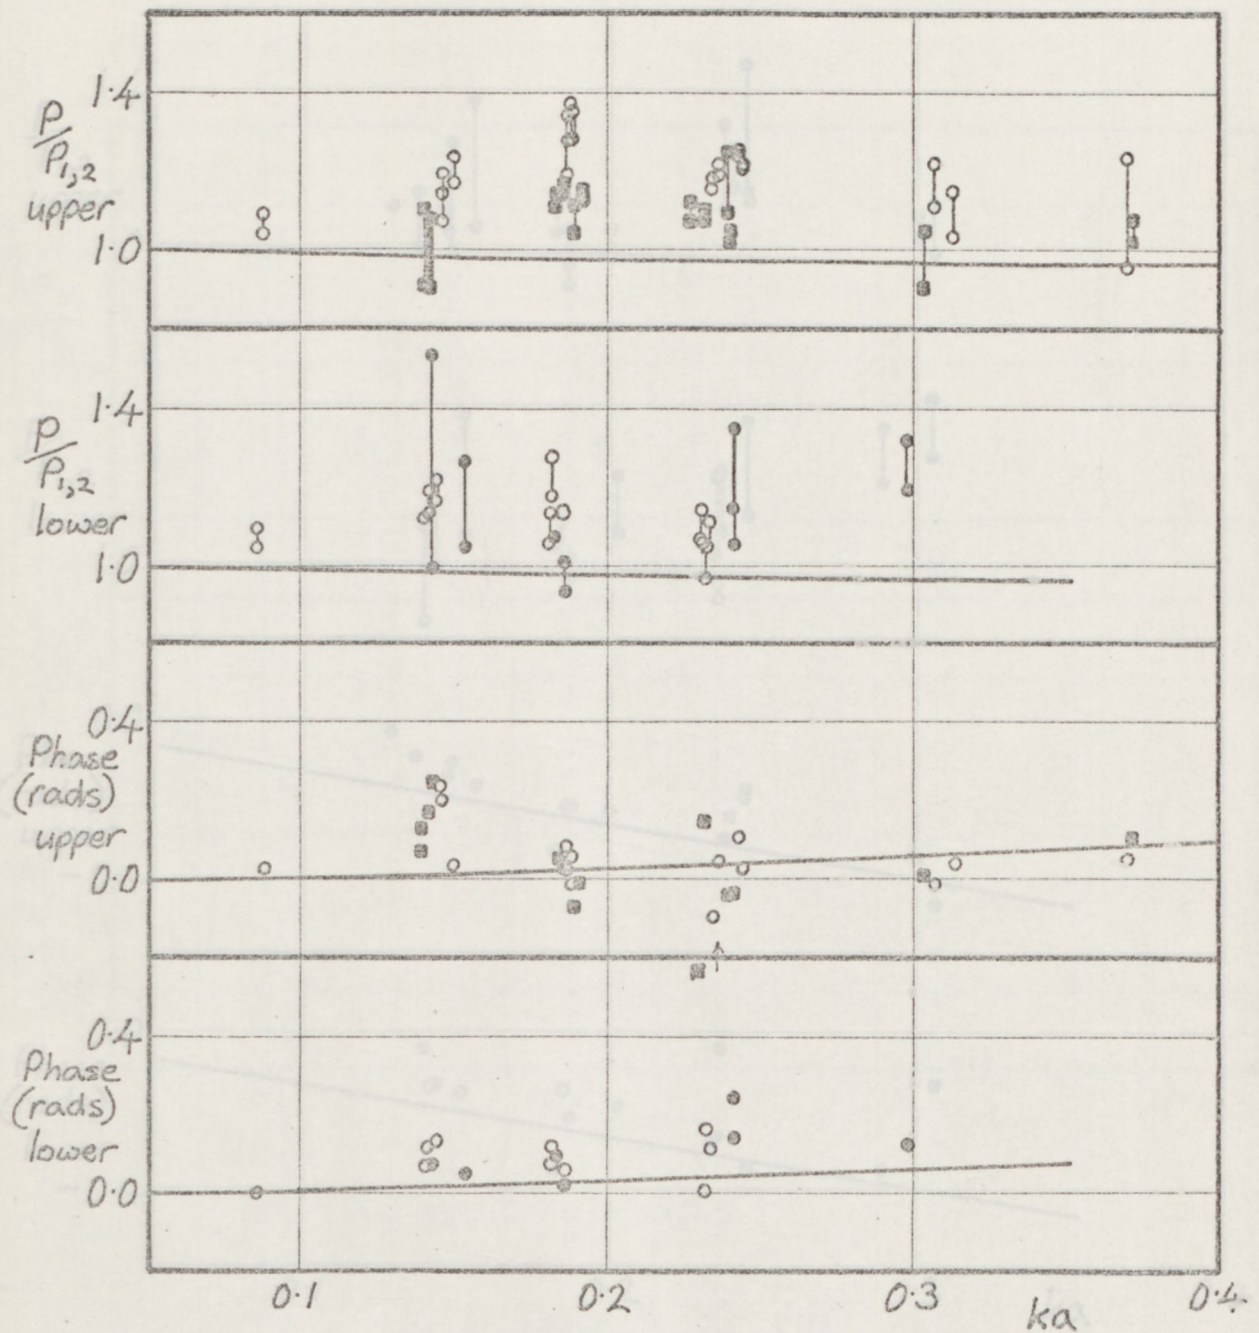 1.4
P/P1,2
upper
1.0
1.4
P/P1,2
lower
1.0
0.4
Phase
(rads)
upper
0.0
0.4
Phase
(rads)
lower
0.0
0.1 0.2 0.3 0.4
ka